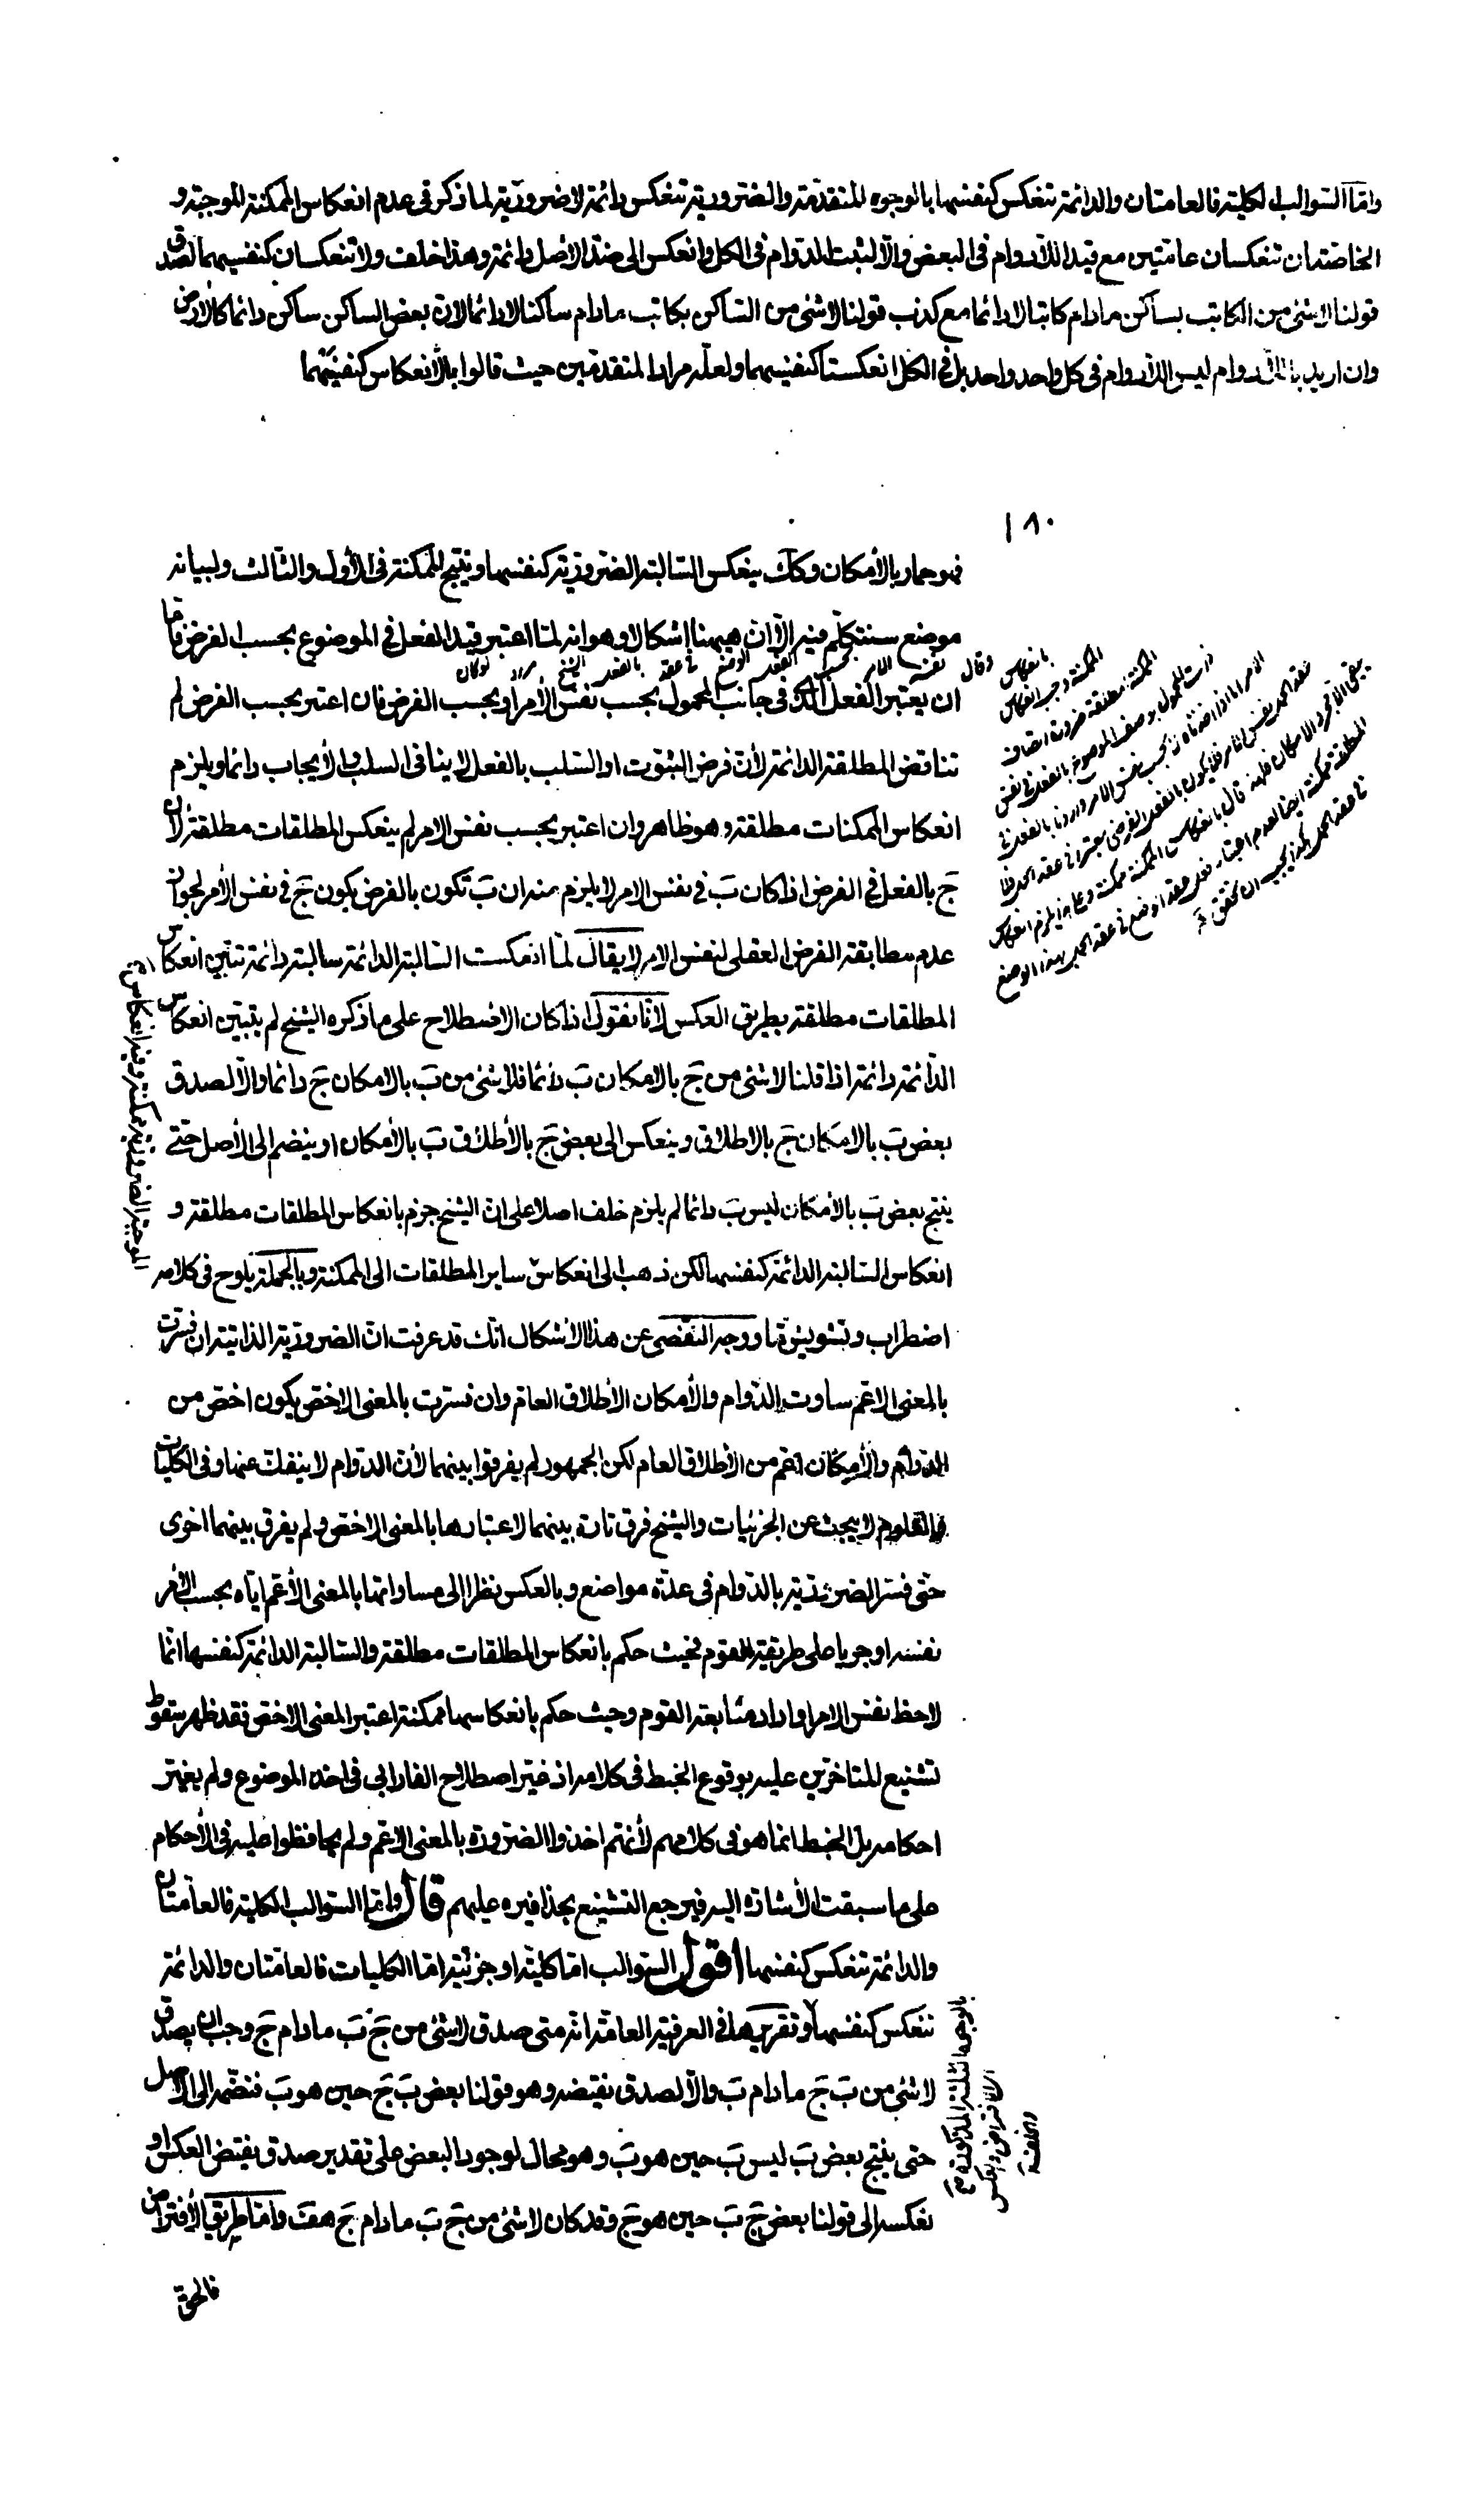 واما السوالب الكلية فالعامتان والدائمة تنعكس كنفسها بالوجوه المتقدمة والضرورية تنعكس دائمة لا ضرورية لما ذكر في عدم انعكاس الممكنة الموجبة و
الخاصتان تنعكسان عامتين مع قيد اللادوام في البعض والا لثبت الدوام في الكل وانعكس الى ضد الاصل دائمة وهذا خلف ولا تنعكسان كنفسيهما لصدق
قولنا لا شئ من الكاتب بساكن مادام كاتبا لا دائما مع كذب قولنا لا شئ من الساكن بكاتب مادام ساكنا لا دائما لان بعض الساكن ساكن دائما كالارض
وان اريد باللادوام ليس اللادوام في كل واحد واحد بل في الكل انعكستا كنفسيهما ولعله مراد المتقدمين حيث قالوا بالانعكاس كنفسيهما
١٨٠
فهو حمار بالأمكان وكك ينعكس السالبة الضرورية كنفسها وينتج الممكنة في الأول والثالث ولبيانه
موضع سنتكلم فيه الا ان ههنا اشكالا وهو انه لما اعتبر قيد الفعل في الموضوع بحسب الفرض فاما
ان يعتبر الفعل الذى في جانب المحمول بحسب نفس الأمر او بحسب الفرض فان اعتبر بحسب الفرض لم
تناقض المطلقة الدائمة لأن فرض الثبوت او السلب بالفعل لا ينافي السلب والأيجاب دائما ويلزم
انعكاس الممكنات مطلقة وهو ظاهر وان اعتبر بحسب نفس الامر لم ينعكس المطلقات مطلقة لان
ج بالفعل في الفرض اذا كان ب في نفس الامر لا يلزم منه ان ب تكون بالفرض يكون ج في نفس الأمر لجواز
عدم مطابقة الفرض العقلي لنفس الامر لا يقال لما انعكست السالبة الدائمة سالبة دائمة تبين انعكاس
المطلقات مطلقة بطريق العكس لانا نقول اذا كان الاصطلاح على ما ذكره الشيخ لم يتبين انعكاس
الدائمة دائمة اذا قلنا لا شئ من ج بالامكان ب دائما فلا شئ من ب بالامكان ج دائما والا لصدق
بعض ب بالامكان ج بالاطلاق وينعكس الى بعض ج بالأطلاق ب بالأمكان او ينضم الى الأصل حتى
ينتج بعض ب بالأمكان ليس ب دائما لم يلزم خلف اصلا على ان الشيخ جزم بانعكاس المطلقات مطلقة و
انعكاس السالبة الدائمة كنفسها لكن ذهب الى انعكاس ساير المطلقات الى الممكنة وبالجملة يلوح في كلامه
اضطراب وتشويش ما ووجه التفصى عن هذا الأشكال انك قد عرفت ان الضرورية الذاتية ان فسرت
بالمعنى الاعم ساوت الدوام والأمكان الأطلاق العام وان فسرت بالمعنى الاخص يكون اخص من
الدوام والأمكان اعم من الأطلاق العام لكن الجمهور لم يفرقوا بينهما لأن الدوام لا ينفك عنها في الكليات
والعلوم لا يبحث عن الجزئيات والشيخ فرق تارة بينهما لاعتبارها بالمعنى الاخص ولم يفرق بينهما اخرى
حتى فسر الضرورية بالدوام في عدة مواضع وبالعكس نظرا الى مساواتها بالمعنى الأعم اياه بحسب الأمر
نفسه او جريا على طريقة القوم فحيث حكم بانعكاس المطلقات مطلقة والسالبة الدائمة كنفسها انما
لاحظ نفس الامر او اراد متابعة القوم وحيث حكم بانعكاسها ممكنة اعتبر المعنى الاخص فقد ظهر سقوط
تشنيع المتاخرين عليه بوقوع الخبط في كلامه اذ غير اصطلاح الفارابي في اخذ الموضوع ولم يغير
احكامه بل الخبط انما هو في كلامهم لأنهم اخذوا الضرورة بالمعنى الاعم ولم يحافظوا عليه في الأحكام
على ما سبقت الأشارة اليه فيرجع التشنيع بحذافيره عليهم قال واما السوالب الكلية فالعامتان
والدائمة تنعكس كنفسها اقول السوالب اما كلية او جزئية اما الكليات فالعامتان والدائمة
تنعكس كنفسها وتقريره في العرفية العامة انه متى صدق لا شئ من ج ب مادام ج وجب ان يصدق
لا شئ من ب ج مادام ب والا لصدق نقيضه وهو قولنا بعض ب ج حين هو ب فنضمه الى الاصل
حتى ينتج بعض ب ليس ب حين هو ب وهو محال لوجود البعض على تقدير صدق نقيض العكس او
نعكسه الى قولنا بعض ج ب حين هو ج وقد كان لا شئ من ج ب مادام ج هف واما طريق الأفتراض
بالوجوه الثلثة المذكورة
الافتراض والعكس
والخلف